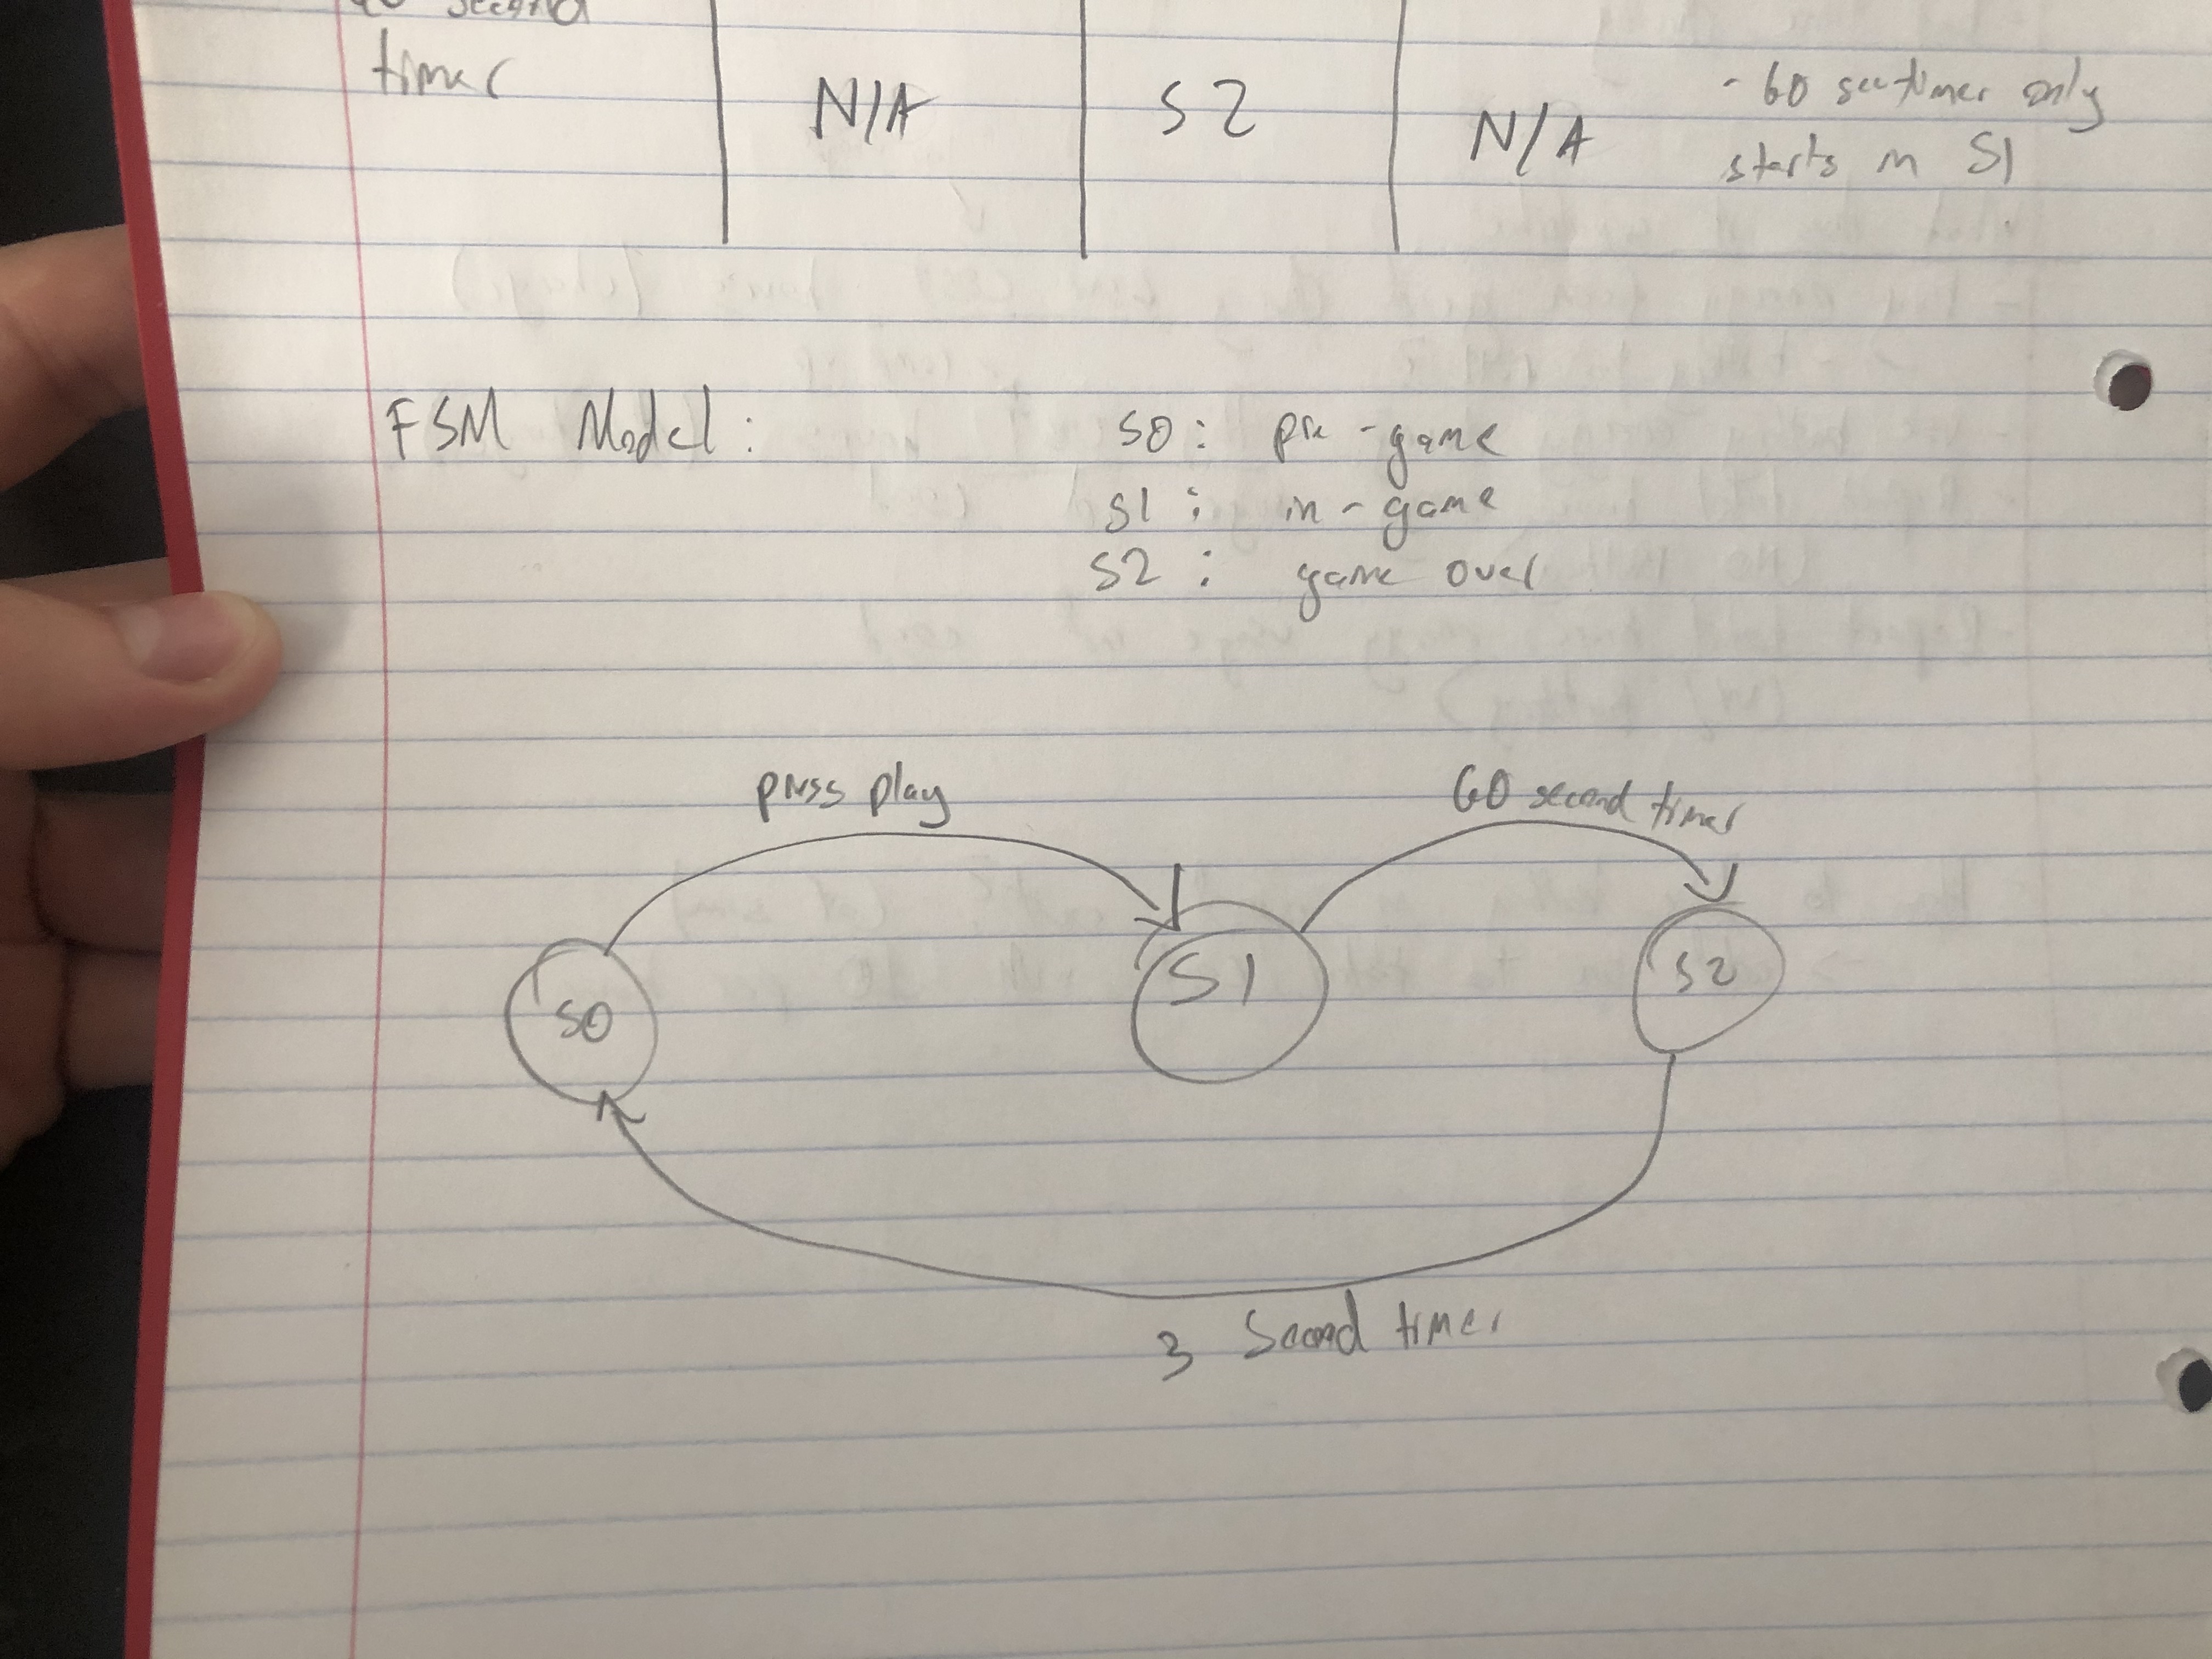 second
timer
N/A
S2
N/A
- 60 sec timer only
starts in S1
FSM Model:
S0: pre-game
S1: in-game
S2: game over
press play
60 second timer
S0
S1
S2
3 second timer